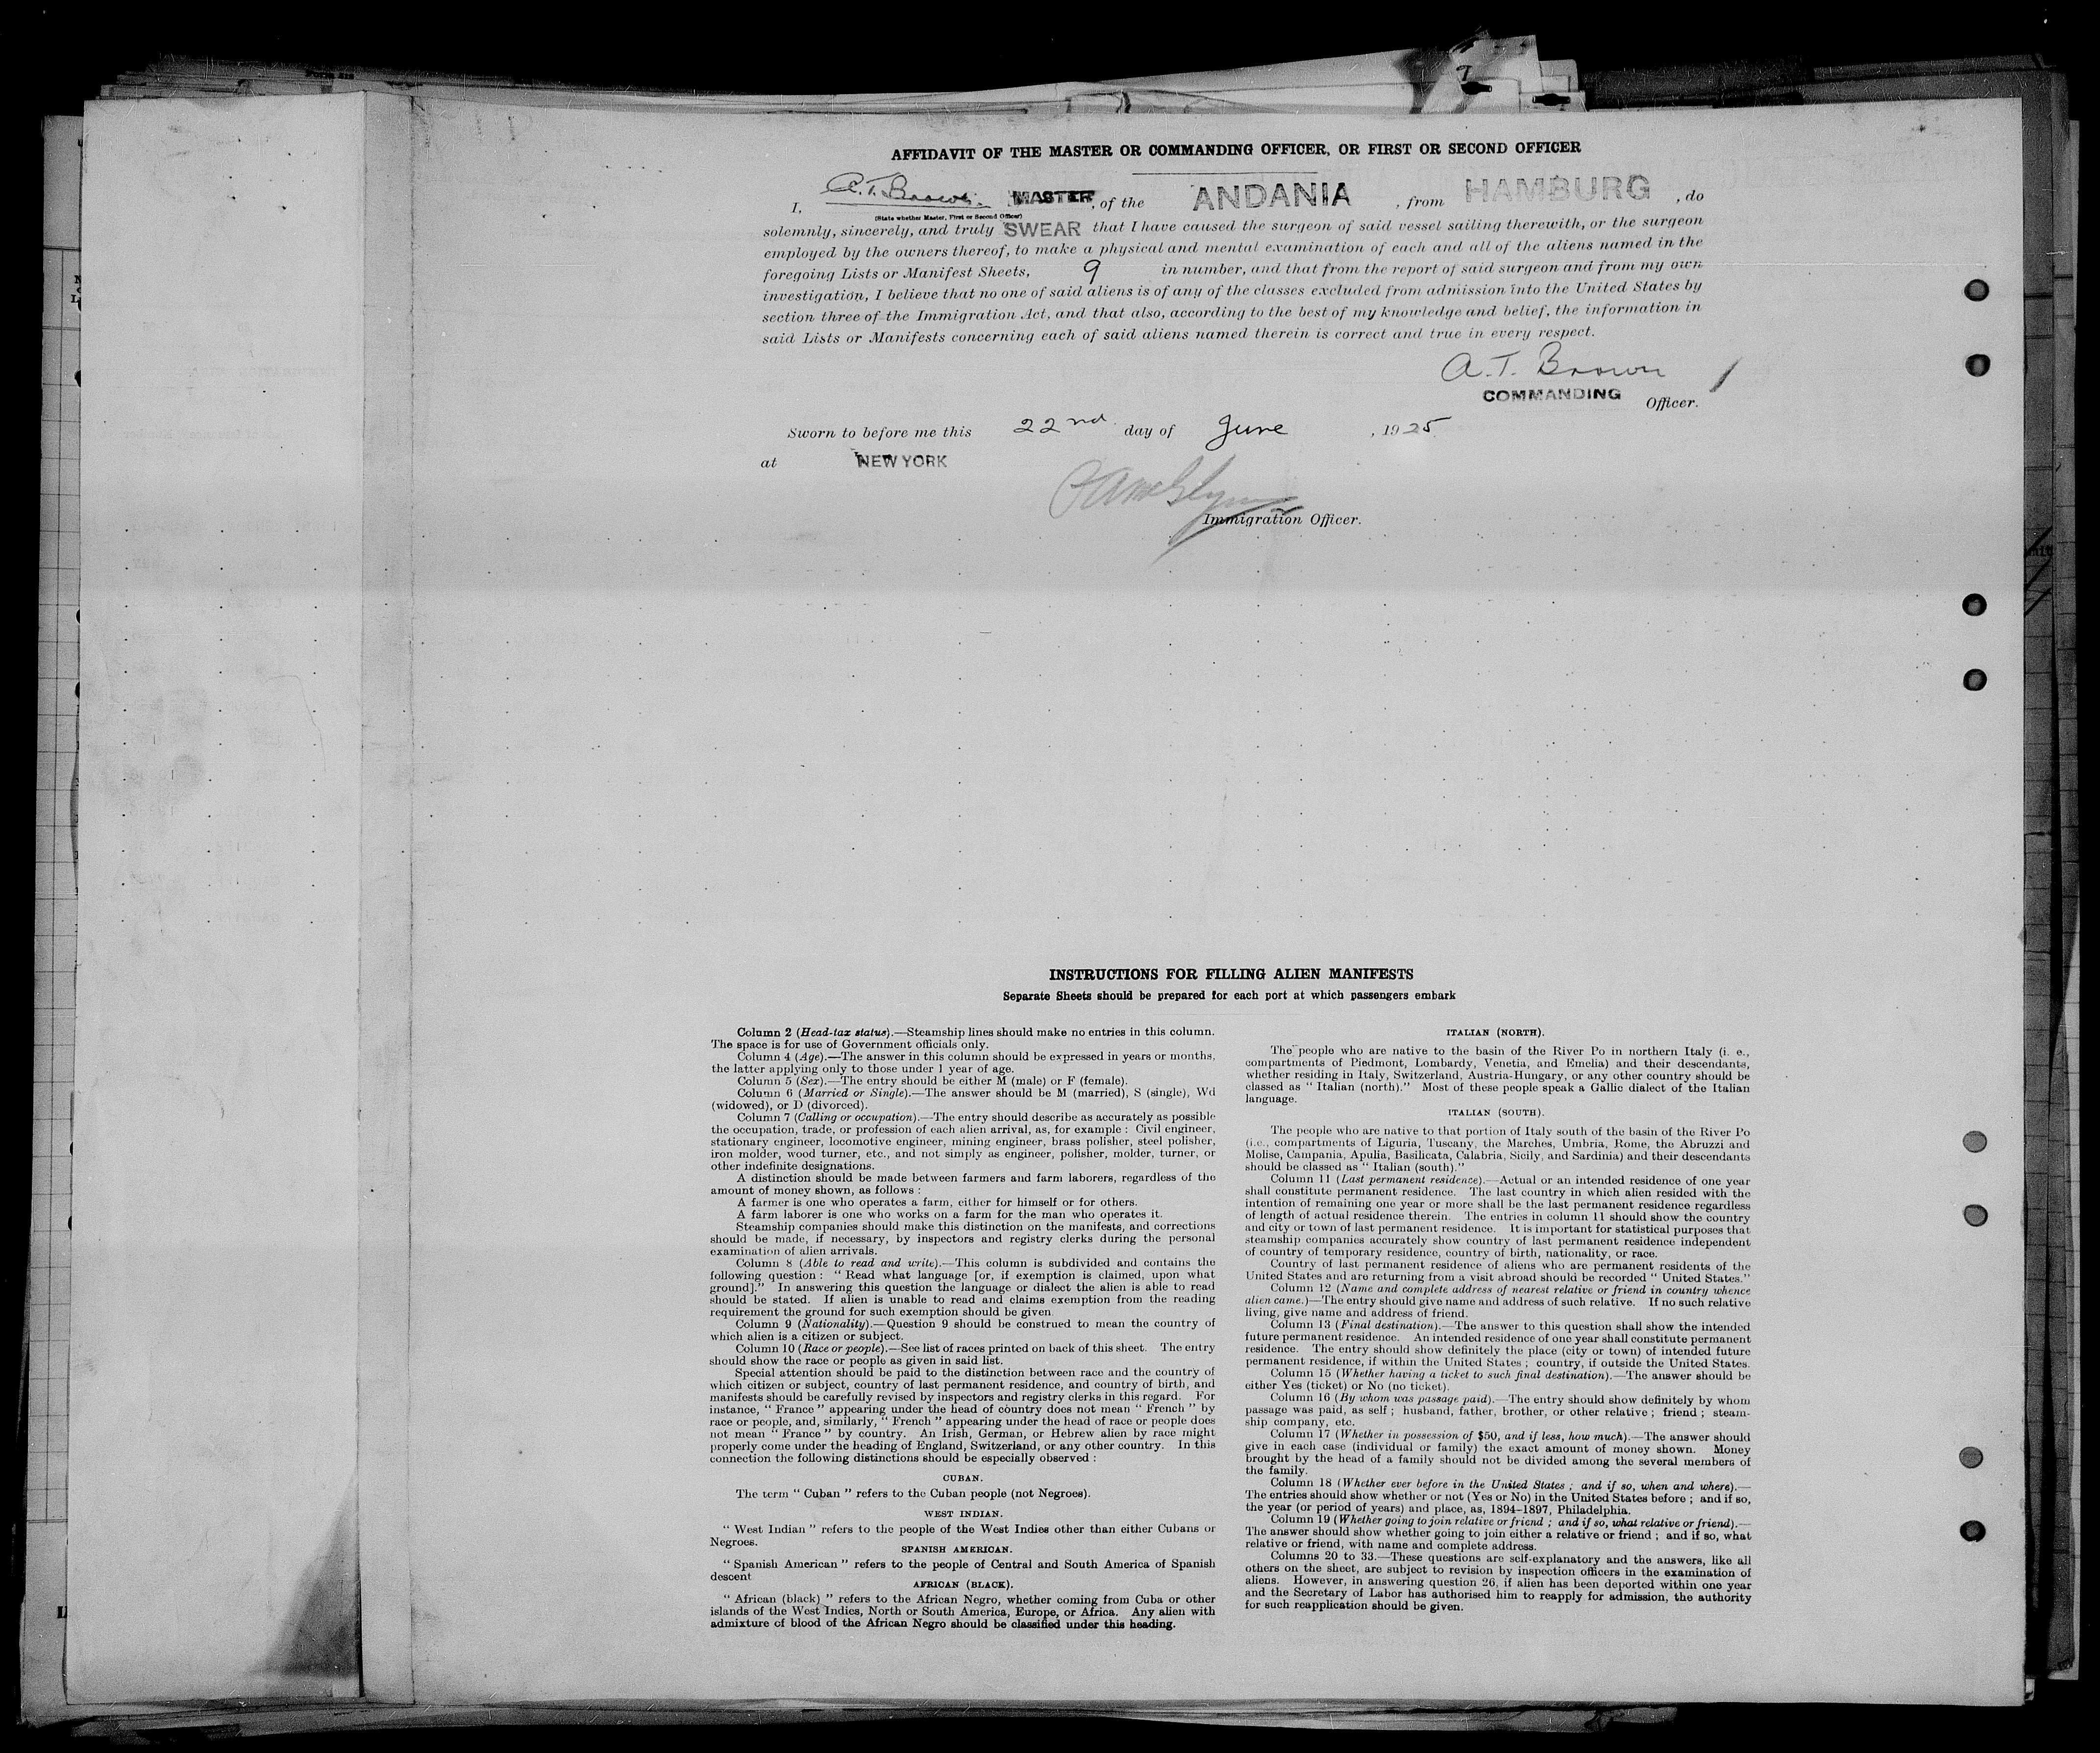 AFFIDAVIT OF THE MASTER OR COMMANDING OFFICER, OR FIRST OR SECOND OFFICER
I, A.T. Brown. MASTER, of the ANDANIA, from HAMBURG, do
(State whether Master, First or Second Officer)
solemnly, sincerely, and truly SWEAR that I have caused the surgeon of said vessel sailing therewith, or the surgeon
employed by the owners thereof, to make a physical and mental examination of each and all of the aliens named in the
foregoing Lists or Manifest Sheets, 9 in number, and that from the report of said surgeon and from my own
investigation, I believe that no one of said aliens is of any of the classes excluded from admission into the United States by
section three of the Immigration Act, and that also, according to the best of my knowledge and belief, the information in
said Lists or Manifests concerning each of said aliens named therein is correct and true in every respect.
A.T. Brown
COMMANDING Officer.
Sworn to before me this 22nd day of June, 1925
at NEW YORK
Immigration Officer.
INSTRUCTIONS FOR FILLING ALIEN MANIFESTS
Separate Sheets should be prepared for each port at which passengers embark
Column 2 (Head-tax status).—Steamship lines should make no entries in this column.
The space is for use of Government officials only.
Column 4 (Age).—The answer in this column should be expressed in years or months,
the latter applying only to those under 1 year of age.
Column 5 (Sex).—The entry should be either M (male) or F (female).
Column 6 (Married or Single).—The answer should be M (married), S (single), Wd
(widowed), or D (divorced).
Column 7 (Calling or occupation).—The entry should describe as accurately as possible
the occupation, trade, or profession of each alien arrival, as, for example : Civil engineer,
stationary engineer, locomotive engineer, mining engineer, brass polisher, steel polisher,
iron molder, wood turner, etc., and not simply as engineer, polisher, molder, turner, or
other indefinite designations.
A distinction should be made between farmers and farm laborers, regardless of the
amount of money shown, as follows :
A farmer is one who operates a farm, either for himself or for others.
A farm laborer is one who works on a farm for the man who operates it.
Steamship companies should make this distinction on the manifests, and corrections
should be made, if necessary, by inspectors and registry clerks during the personal
examination of alien arrivals.
Column 8 (Able to read and write).—This column is subdivided and contains the
following question : " Read what language [or, if exemption is claimed, upon what
ground]." In answering this question the language or dialect the alien is able to read
should be stated. If alien is unable to read and claims exemption from the reading
requirement the ground for such exemption should be given
Column 9 (Nationality).—Question 9 should be construed to mean the country of
which alien is a citizen or subject.
Column 10 (Race or people).—See list of races printed on back of this sheet. The entry
should show the race or people as given in said list.
Special attention should be paid to the distinction between race and the country of
which citizen or subject, country of last permanent residence, and country of birth, and
manifests should be carefully revised by inspectors and registry clerks in this regard. For
instance, " France " appearing under the head of country does not mean " French " by
race or people, and, similarly, " French " appearing under the head of race or people does
not mean " France " by country. An Irish, German, or Hebrew alien by race might
properly come under the heading of England, Switzerland, or any other country. In this
connection the following distinctions should be especially observed :
CUBAN.
The term " Cuban " refers to the Cuban people (not Negroes).
WEST INDIAN.
" West Indian " refers to the people of the West Indies other than either Cubans or
Negroes.
SPANISH AMERICAN.
" Spanish American " refers to the people of Central and South America of Spanish
descent
AFRICAN (BLACK).
" African (black) " refers to the African Negro, whether coming from Cuba or other
islands of the West Indies, North or South America, Europe, or Africa. Any alien with
admixture of blood of the African Negro should be classified under this heading.
ITALIAN (NORTH).
The people who are native to the basin of the River Po in northern Italy (i. e.,
compartments of Piedmont, Lombardy, Venetia, and Emelia) and their descendants,
whether residing in Italy, Switzerland, Austria-Hungary, or any other country should be
classed as " Italian (north)." Most of these people speak a Gallic dialect of the Italian
language.
ITALIAN (SOUTH).
The people who are native to that portion of Italy south of the basin of the River Po
(i.e., compartments of Liguria, Tuscany, the Marches, Umbria, Rome, the Abruzzi and
Molise, Campania, Apulia, Basilicata, Calabria, Sicily, and Sardinia) and their descendants
should be classed as " Italian (south)."
Column 11 (Last permanent residence).—Actual or an intended residence of one year
shall constitute permanent residence. The last country in which alien resided with the
intention of remaining one year or more shall be the last permanent residence regardless
of length of actual residence therein. The entries in column 11 should show the country
and city or town of last permanent residence. It is important for statistical purposes that
steamship companies accurately show country of last permanent residence independent
of country of temporary residence, country of birth, nationality, or race.
Country of last permanent residence of aliens who are permanent residents of the
United States and are returning from a visit abroad should be recorded " United States."
Column 12 (Name and complete address of nearest relative or friend in country whence
alien came.)—The entry should give name and address of such relative. If no such relative
living, give name and address of friend.
Column 13 (Final destination).—The answer to this question shall show the intended
future permanent residence. An intended residence of one year shall constitute permanent
residence. The entry should show definitely the place (city or town) of intended future
permanent residence, if within the United States ; country, if outside the United States.
Column 15 (Whether having a ticket to such final destination).—The answer should be
either Yes (ticket) or No (no ticket).
Column 16 (By whom was passage paid).—The entry should show definitely by whom
passage was paid, as self ; husband, father, brother, or other relative ; friend ; steam-
ship company, etc.
Column 17 (Whether in possession of $50, and if less, how much).—The answer should
give in each case (individual or family) the exact amount of money shown. Money
brought by the head of a family should not be divided among the several members of
the family.
Column 18 (Whether ever before in the United States ; and if so, when and where).—
The entries should show whether or not (Yes or No) in the United States before ; and if so,
the year (or period of years) and place, as, 1894–1897, Philadelphia.
Column 19 (Whether going to join relative or friend ; and if so, what relative or friend).—
The answer should show whether going to join either a relative or friend ; and if so, what
relative or friend, with name and complete address.
Columns 20 to 33.—These questions are self-explanatory and the answers, like all
others on the sheet, are subject to revision by inspection officers in the examination of
aliens. However, in answering question 26, if alien has been deported within one year
and the Secretary of Labor has authorised him to reapply for admission, the authority
for such reapplication should be given.